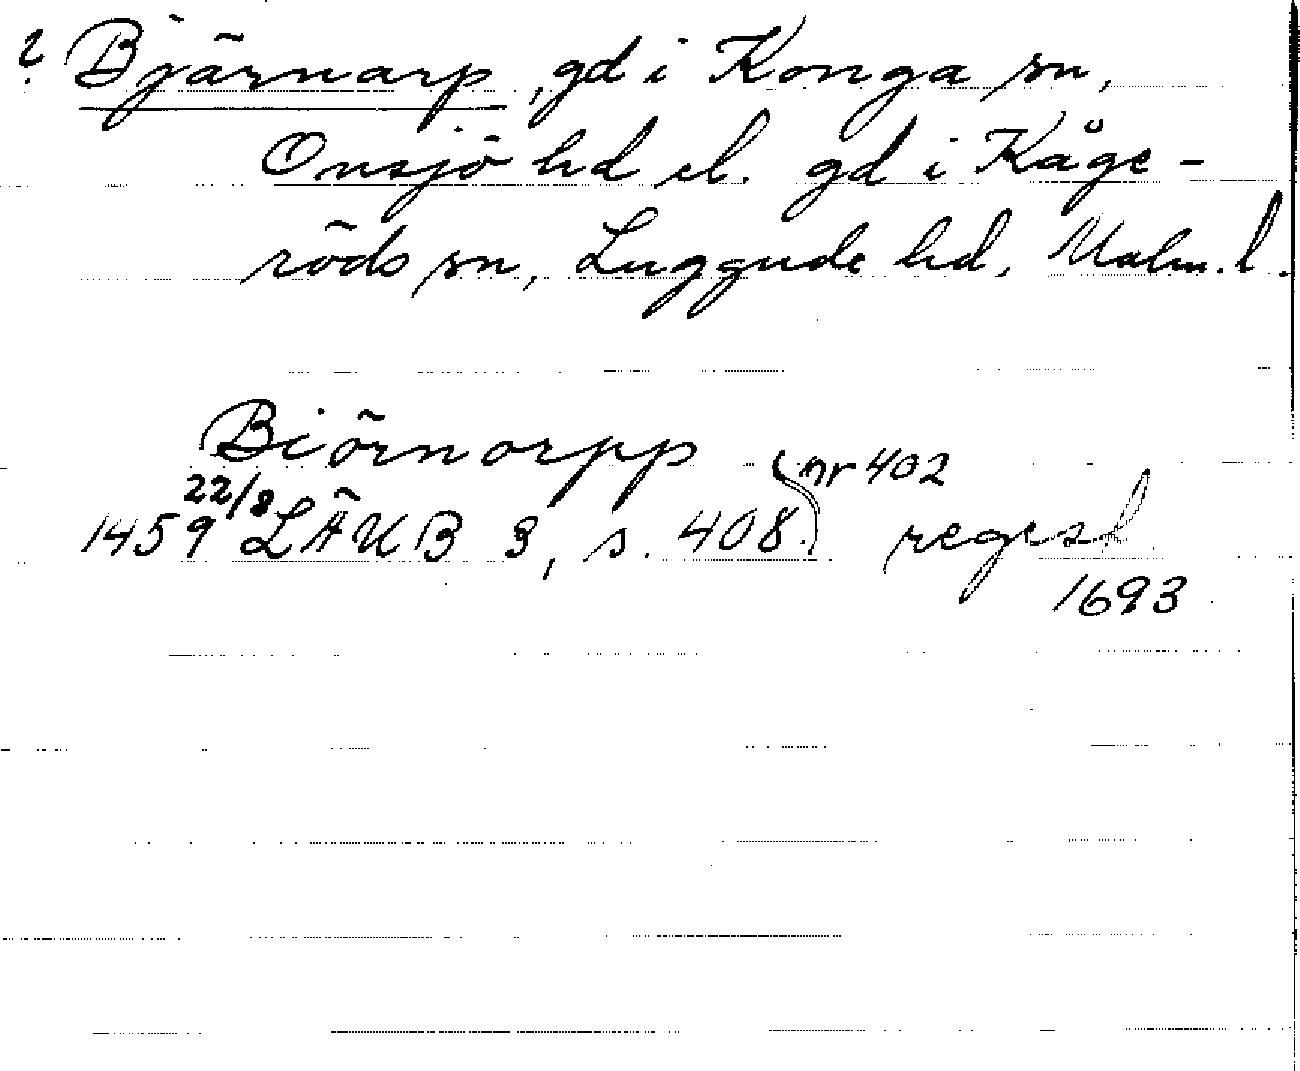 ? Bjärnarp, gd i Konga sn,
Onsjö hd el. gd i Kåge-
röds sn, Luggude hd, Malm. l.
Biörnorpp
1459 22/8 LÄUB 3, s. 408. nr 402 regest
1693